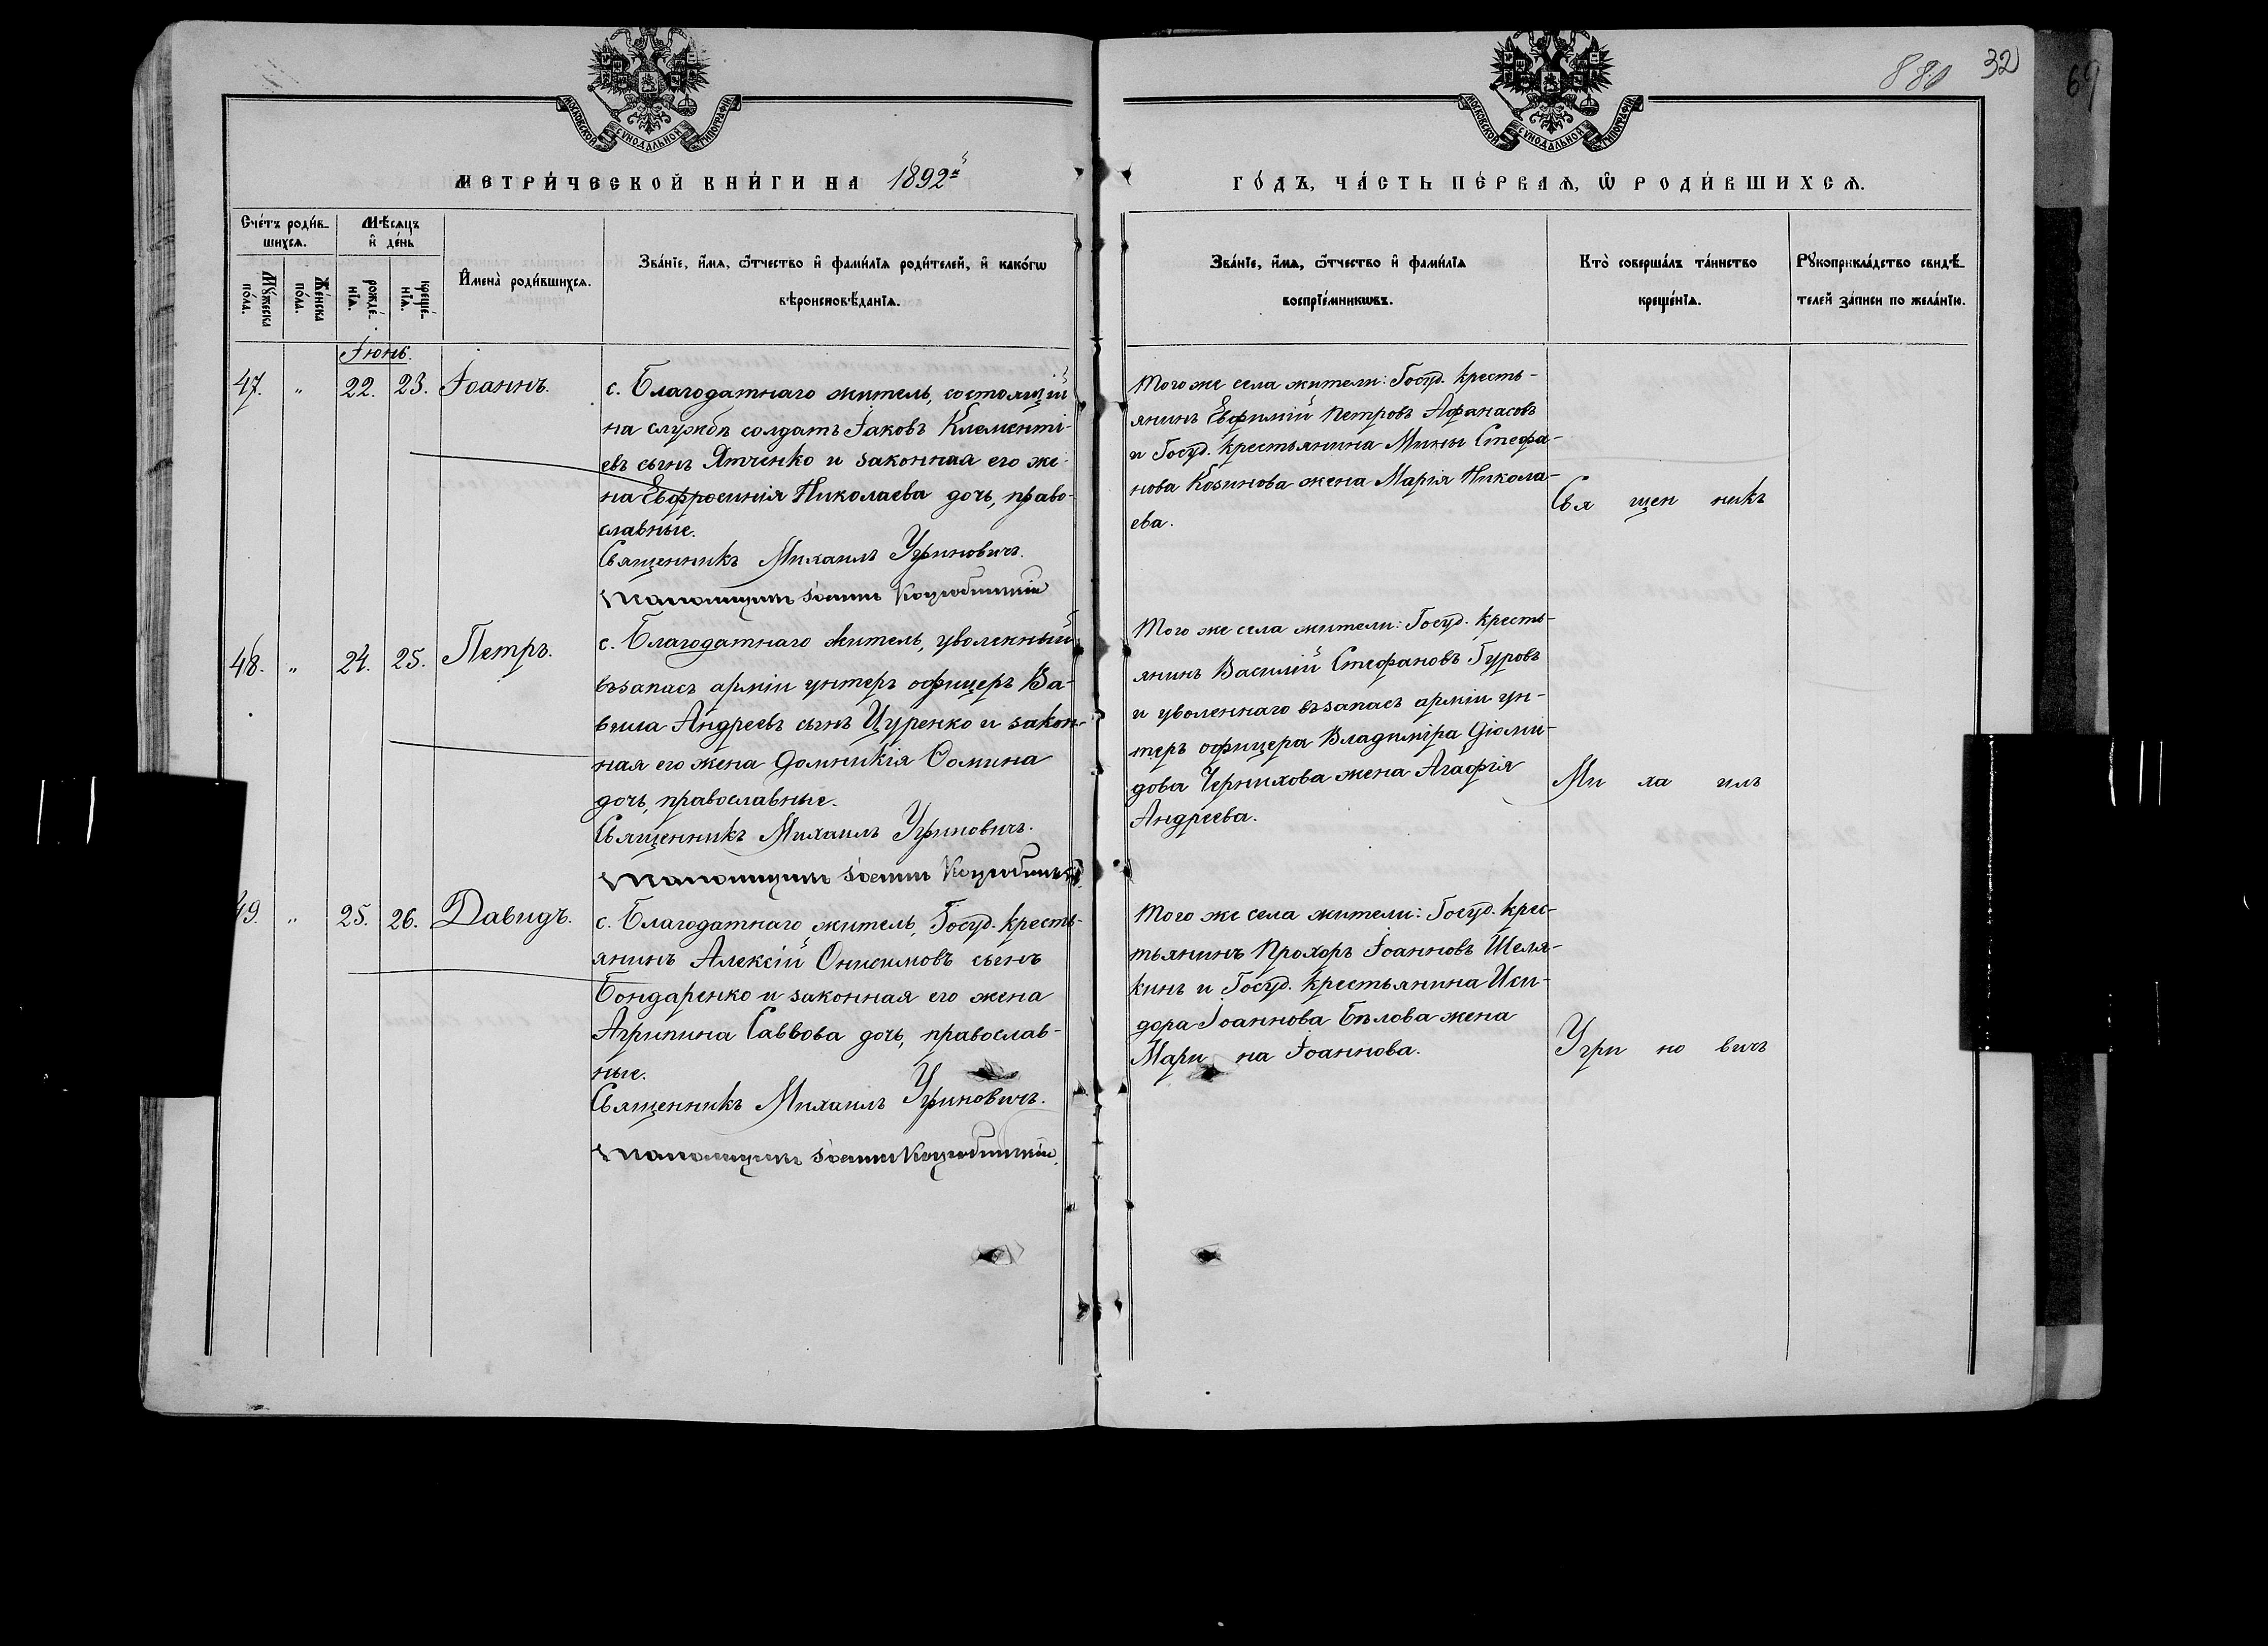 880
32
69
МОСКОВСКОЙ СѴНОДАЛЬНОЙ ТИПОГРАФІИ
МОСКОВСКОЙ СѴНОДАЛЬНОЙ ТИПОГРАФІИ
МЕТРИ́ЧЕСКОЙ КНИ́ГИ НА 1892й
ГО́ДЪ, ЧА́СТЬ ПЕ́РВАѦ, Ѡ҆ РОДИ́ВШИХСѦ.
Сче́тъ роди́в-
шихсѧ.
Мѣ́сѧцъ
и҆ де́нь
Мꙋ́жеска
по́ла.
Же́нска
по́ла.
рожде́-
нїѧ.
креще́-
нїѧ.
И҆мена̀ роди́вшихсѧ.
Зва́нїе, и҆́мѧ, ѻ҆́тчество и҆ фами́лїѧ роди́телей, и҆ како́гѡ
вѣроисповѣ́данїѧ.
Зва́нїе, и҆́мѧ, ѻ҆́тчество и҆ фами́лїѧ
воспрїе́мникѡвъ.
Кто̀ соверша́лъ та́инство
креще́нїѧ.
Рꙋкоприкла́дство свидѣ́-
телей за́писи по жела́нїю.
Іюнь.
47. " 22. 23. Іоаннъ.
с. Благодатнаго житель, состоящій
на службѣ солдатъ Іаковъ Клементі-
евъ сынъ Ятченко и законная его же-
на Евфросинія Николаева дочь, право-
славные.
Священникъ Михаилъ Угриновичъ.
Псаломщикъ Іоаннъ
Того же села жители: Госуд. кресть-
янинъ Евфимій Петровъ Афанасовъ
и Госуд. крестьянина Мины Стефа-
нова Козинова жена Марія Никола-
ева.
Свя щен никъ
48. " 24. 25. Петръ.
с. Благодатнаго житель, уволенный
въ запасъ арміи унтеръ офицеръ Ва-
вила Андреевъ сынъ Цуренко и закон-
ная его жена Домникія Ѳомина
дочь, православные.
Священникъ Михаилъ Угриновичъ.
Псаломщикъ Іоаннъ
Того же села жители: Госуд. кресть-
янинъ Василій Стефановъ Гуровъ
и уволеннаго въ запасъ арміи ун-
теръ офицера Владиміра Діоми-
дова Чернихова жена Агафія
Андреева.
Ми ха илъ
49. " 25. 26. Давидъ.
с. Благодатнаго житель, Госуд. кресть-
янинъ Алексій Онисимовъ сынъ
Бондаренко и законная его жена
Агрипина Саввова дочь, православ-
ные.
Священникъ Михаилъ Угриновичъ.
Псаломщикъ Іоаннъ
Того же села жители: Госуд. крес-
тьянинъ Прохоръ Іоанновъ Шеля-
кинъ и Госуд. крестьянина Иси-
дора Іоаннова Бѣлова жена
Мари на Іоаннова.
Угри но вичъ